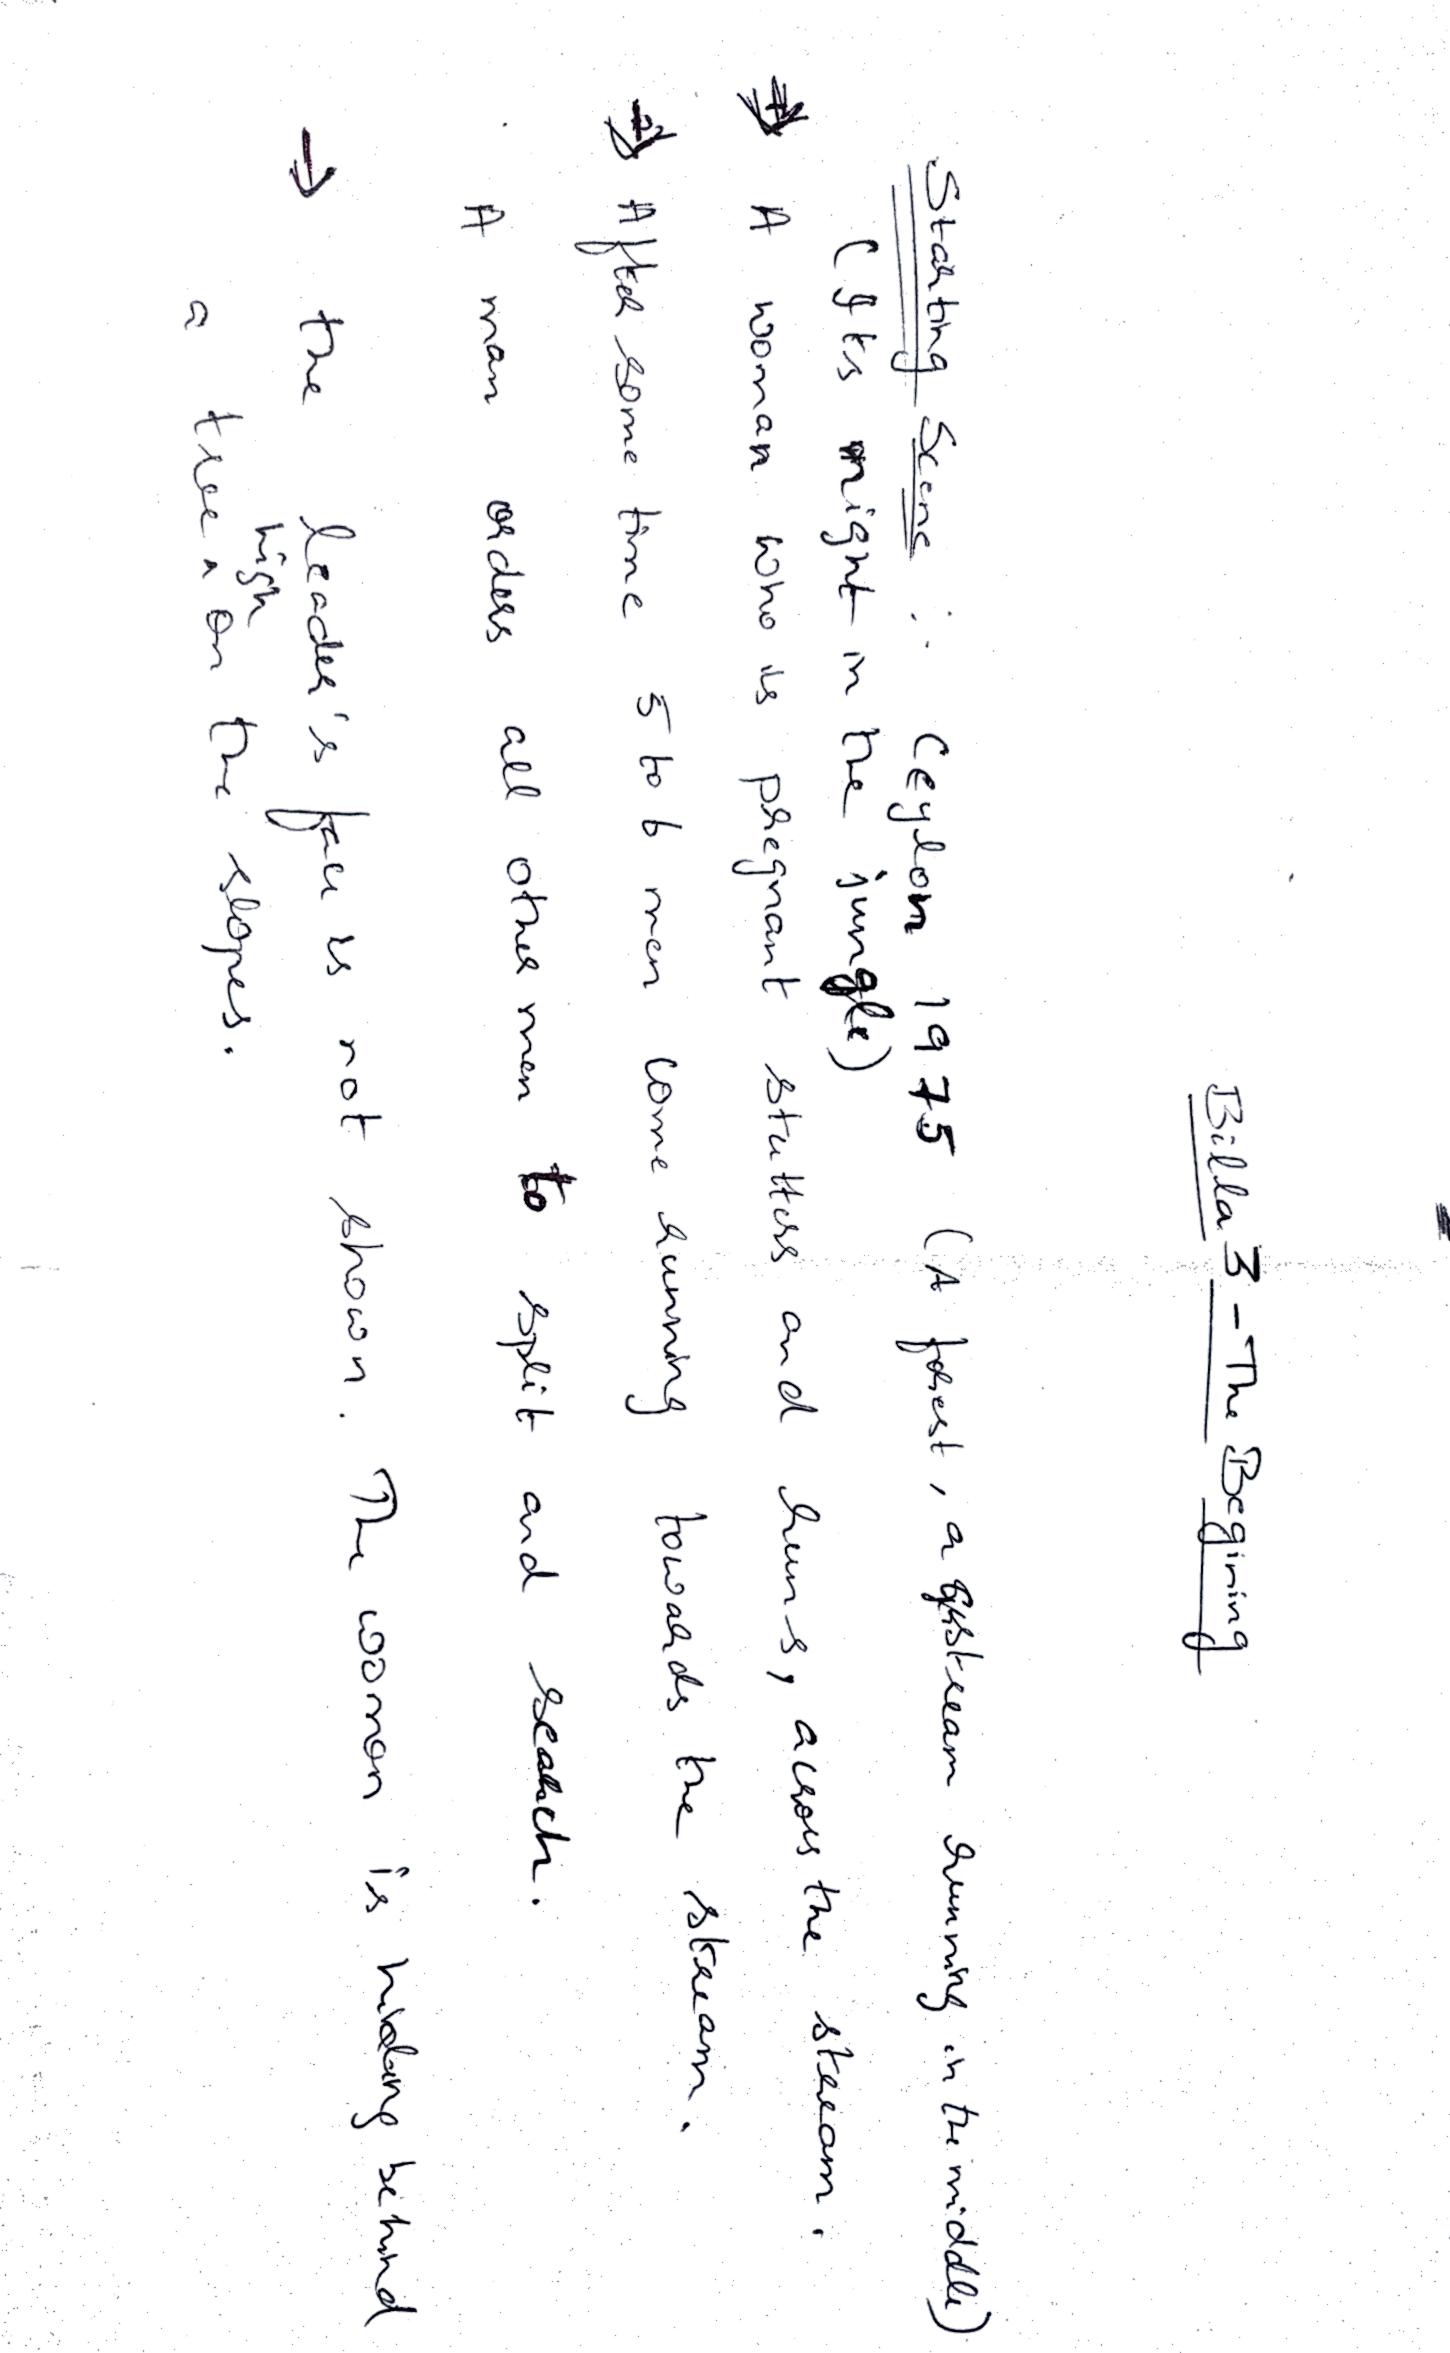 Billa 3 - The Begining
Starting Scene :. Ceylon 1975 (A forest, a stream running in the middle)
(Its night in the jungle)
→ A woman who is pregnant stutters and runs, across the stream.
→ After some time 5 to 6 men come running towards the stream.
A man orders all other men to split and search.
→ the leader's face is not shown. The woman is hiding behind
high
a tree ^ on the slopes.